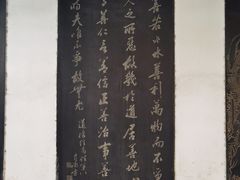 善若水水善利萬物而不
人之所惡故幾於道居善地
善仁言善信正善治事善
夫唯不爭故無尤